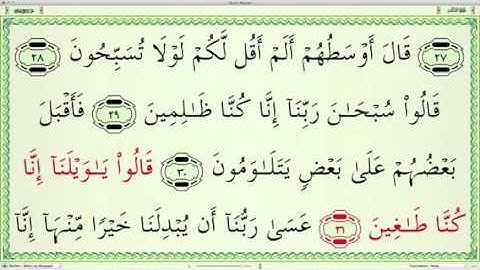 ٢٧ قَالَ أَوْسَطُهُمْ أَلَمْ أَقُل لَّكُمْ لَوْلَا تُسَبِّحُونَ ٢٨
قَالُوا۟ سُبْحَـٰنَ رَبِّنَآ إِنَّا كُنَّا ظَـٰلِمِينَ ٢٩ فَأَقْبَلَ
بَعْضُهُمْ عَلَىٰ بَعْضٍ يَتَلَـٰوَمُونَ ٣٠ قَالُوا۟ يَـٰوَيْلَنَآ إِنَّا
كُنَّا طَـٰغِينَ ٣١ عَسَىٰ رَبُّنَآ أَن يُبْدِلَنَا خَيْرًا مِّنْهَآ إِنَّآ